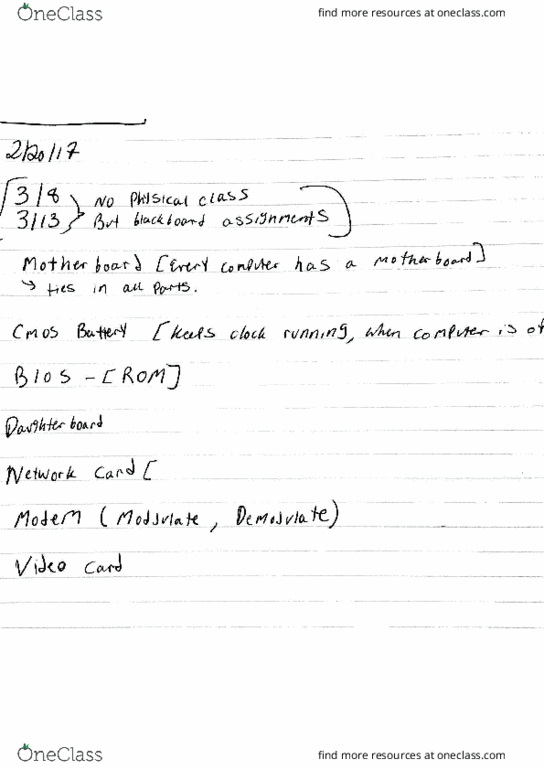 OneClass
find more resources at oneclass.com
2/20/17
3/8 No Physical class
3/13 But blackboard assignments
Motherboard [Every computer has a motherboard]
↳ ties in all parts.
Cmos Battery [keeps clock running, when computer is of
BIOS - [ROM]
Daughterboard
Network Card [
Modem (Modulate, Demodulate)
Video Card
OneClass
find more resources at oneclass.com